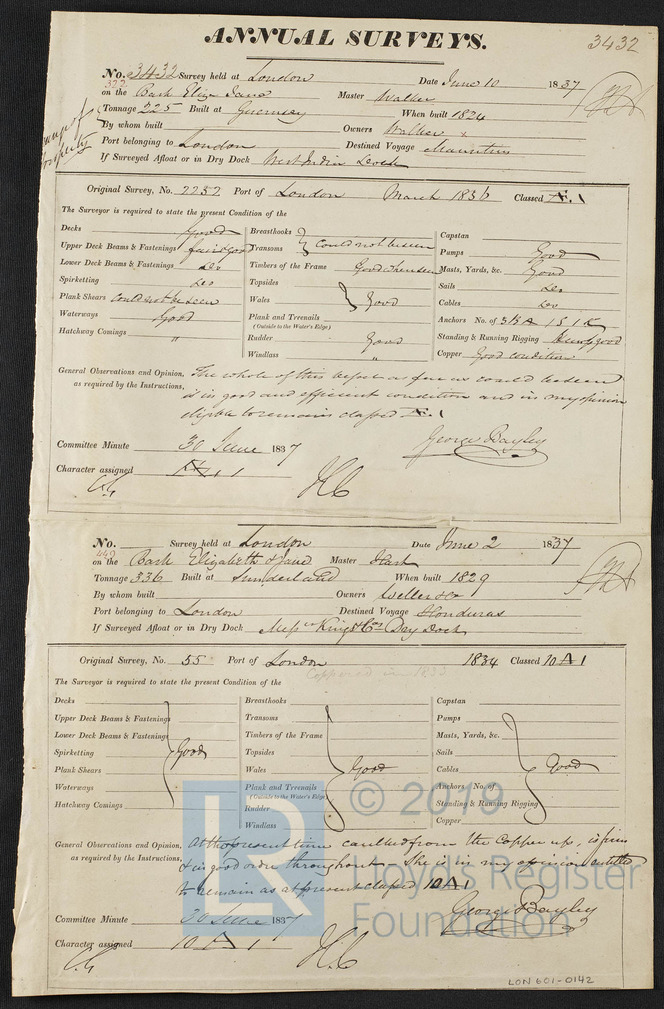 ANNUAL SURVEYS.
3432
No. 3432 Survey held at London Date June 10 1837
322
on the Bark Eliza Jane Master Walker
Tonnage 225 Built at Guernsey When built 1824
By whom built Owners Walker x
Port belonging to London Destined Voyage Mauritius
If Surveyed Afloat or in Dry Dock West India Dock
change of
property
Original Survey, No. 2232 Port of London March 1836 Classed Æ.1
The Surveyor is required to state the present Condition of the
Decks Good Breasthooks Capstan
Upper Deck Beams & Fastenings fair & good Transoms could not be seen Pumps Good
Lower Deck Beams & Fastenings Do Timbers of the Frame Good where seen Masts, Yards, &c. Good
Spirketting Do Topsides Sails Do
Plank Shears could not be seen Wales Good Cables Do
Waterways Good Plank and Treenails Anchors No. of 3 B A 1 S 1 K
(Outside to the Water's Edge)
Hatchway Comings " Rudder Good Standing & Running Rigging good
Windlass " Copper Good condition
General Observations and Opinion, The whole of this vessel as far as could be seen
as required by the Instructions, is in good and efficient condition and in my opinion
eligible to remain classed Æ.1
George Bayley
Committee Minute 30 June 1837
Character assigned Æ 1
No. Survey held at London Date June 2 1837
449
on the Bark Elizabeth & Jane Master
Tonnage 336 Built at Sunderland When built 1829
By whom built Owners Weller & Co
Port belonging to London Destined Voyage Honduras
If Surveyed Afloat or in Dry Dock Messrs King & Co's Dry Dock
Original Survey, No. 55 Port of London 1834 Classed 10 A 1
Coppered in 1833
The Surveyor is required to state the present Condition of the
Decks Breasthooks Capstan
Upper Deck Beams & Fastenings Transoms Pumps
Lower Deck Beams & Fastenings Timbers of the Frame Masts, Yards, &c.
Spirketting Good Topsides Sails
Plank Shears Wales Good Cables Good
Waterways Plank and Treenails Anchors No. of
(Outside to the Water's Edge)
Hatchway Comings Rudder Standing & Running Rigging
Windlass Copper
General Observations and Opinion, At the present time caulked from the Copper up, is firm
as required by the Instructions, & in good order throughout - She is in my opinion entitled
to remain as at present classed 10 A 1
George Bayley
Committee Minute 30 June 1837
Character assigned 10 A 1
LR © 2019
Lloyd's Register
Foundation
LON 601-0142